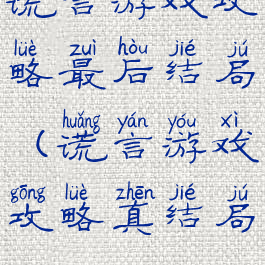 谎言游戏攻
lüè zuì hòu jié jú
略最后结局
huǎng yán yóu xì
（谎言游戏
gōng lüè zhēn jié jú
攻略真结局